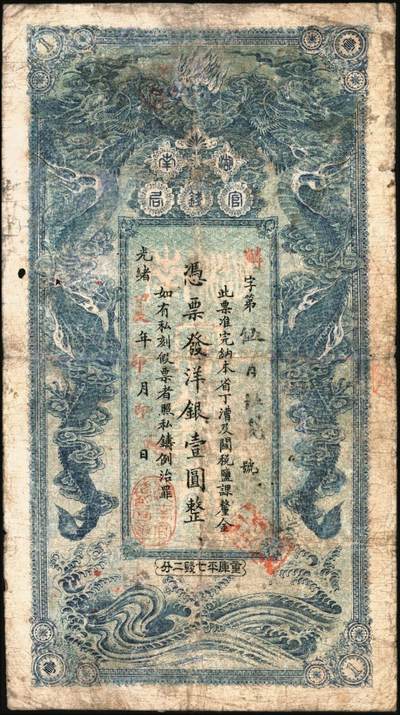 湖南
官錢局
字第伍百號
此票准完納本省丁漕及關稅鹽課釐金
憑票發洋銀壹圓整
如有私刻假票者照私鑄例治罪
光緒年月日
重庫平七錢二分
1
1